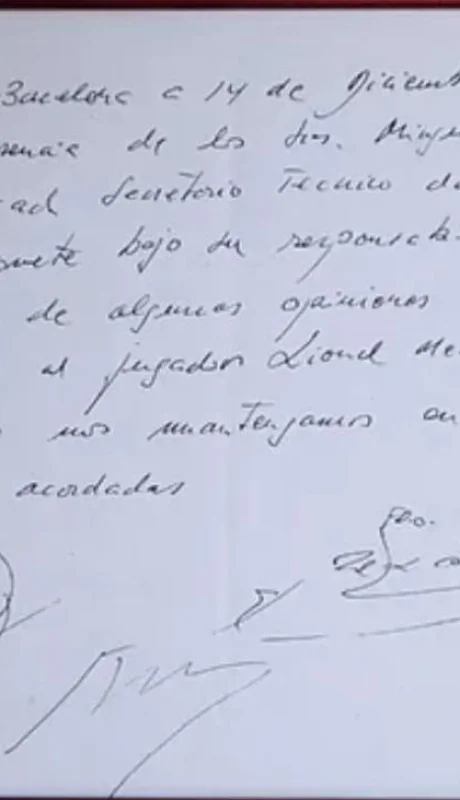 Barcelona a 14 de Diciemb
sencia de los Srs. Mingu
cad Secretario Tecnico de
mete bajo su responsab
de algunas opiniones
al jugador Lionel Me
nos mantengamos en
acordadas
Fdo.